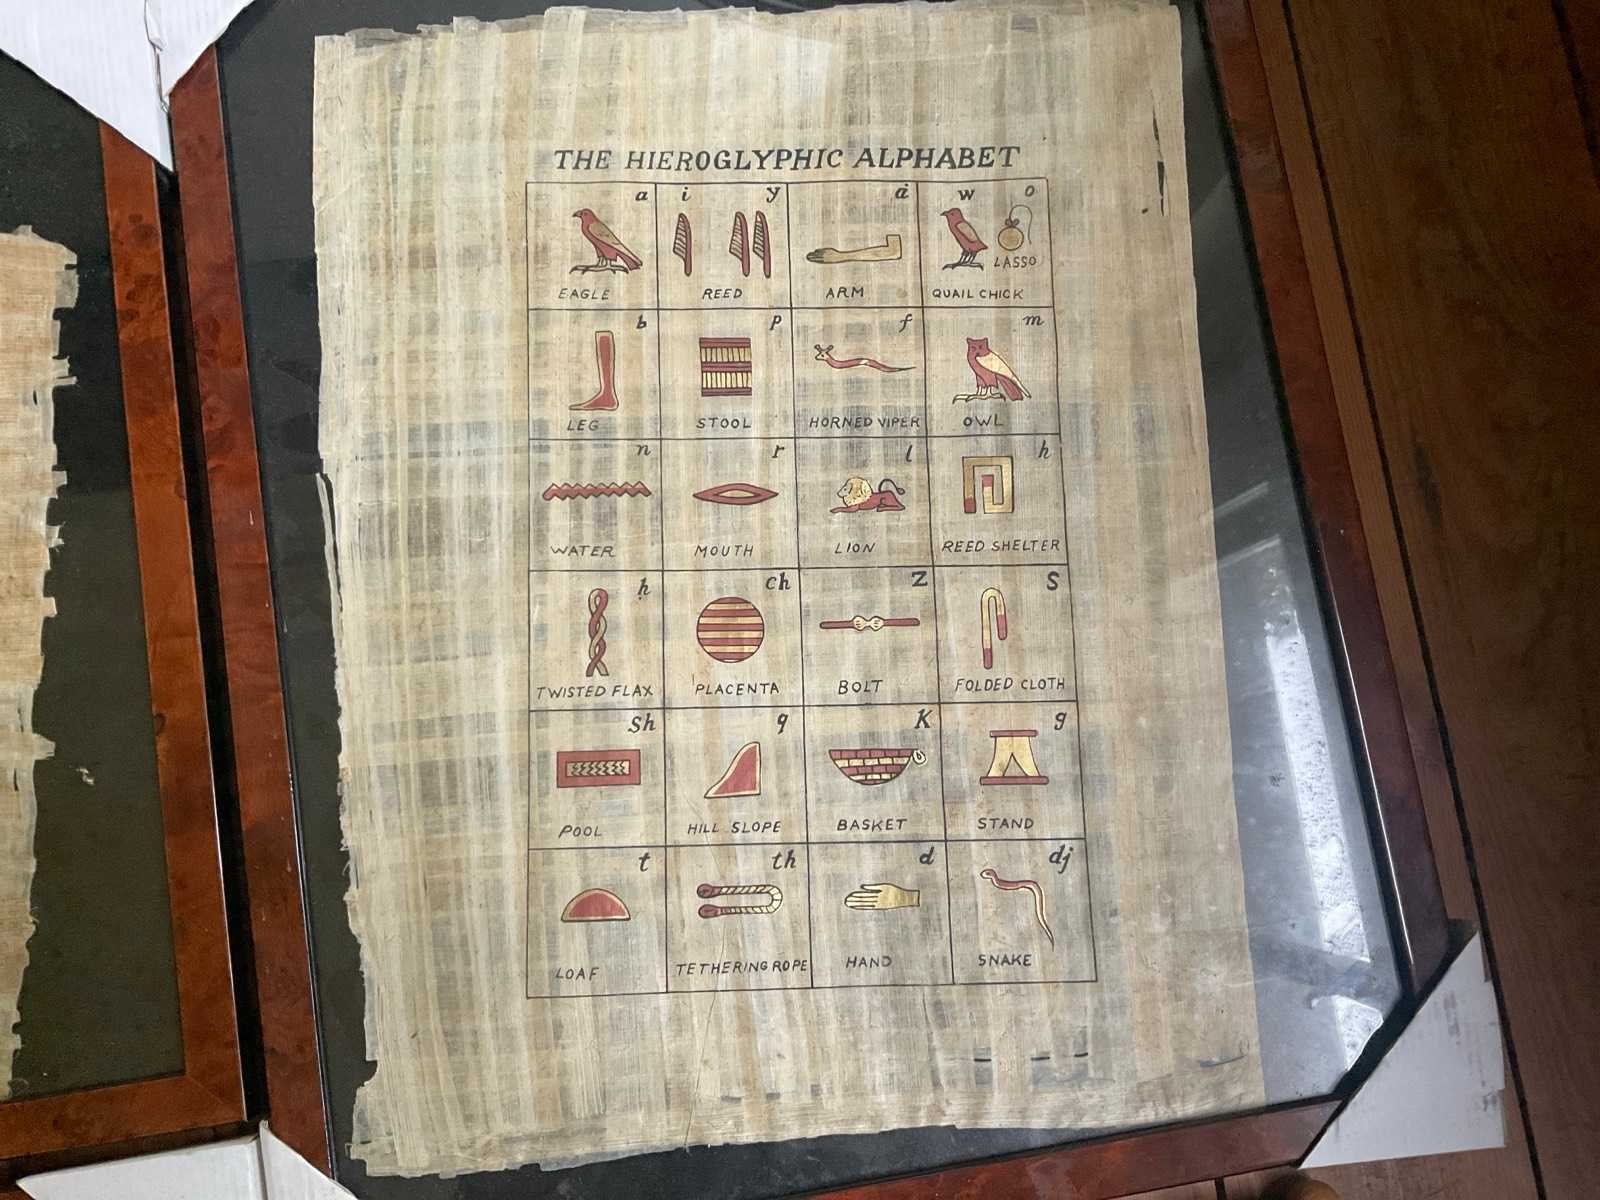 THE HIEROGLYPHIC ALPHABET
a i y ȧ w o
LASSO
EAGLE REED ARM QUAIL CHICK
b p f m
LEG STOOL HORNED VIPER OWL
n r l h
WATER MOUTH LION REED SHELTER
ḥ ch Z S
TWISTED FLAX PLACENTA BOLT FOLDED CLOTH
Sh q K g
POOL HILL SLOPE BASKET STAND
t th d dj
LOAF TETHERING ROPE HAND SNAKE